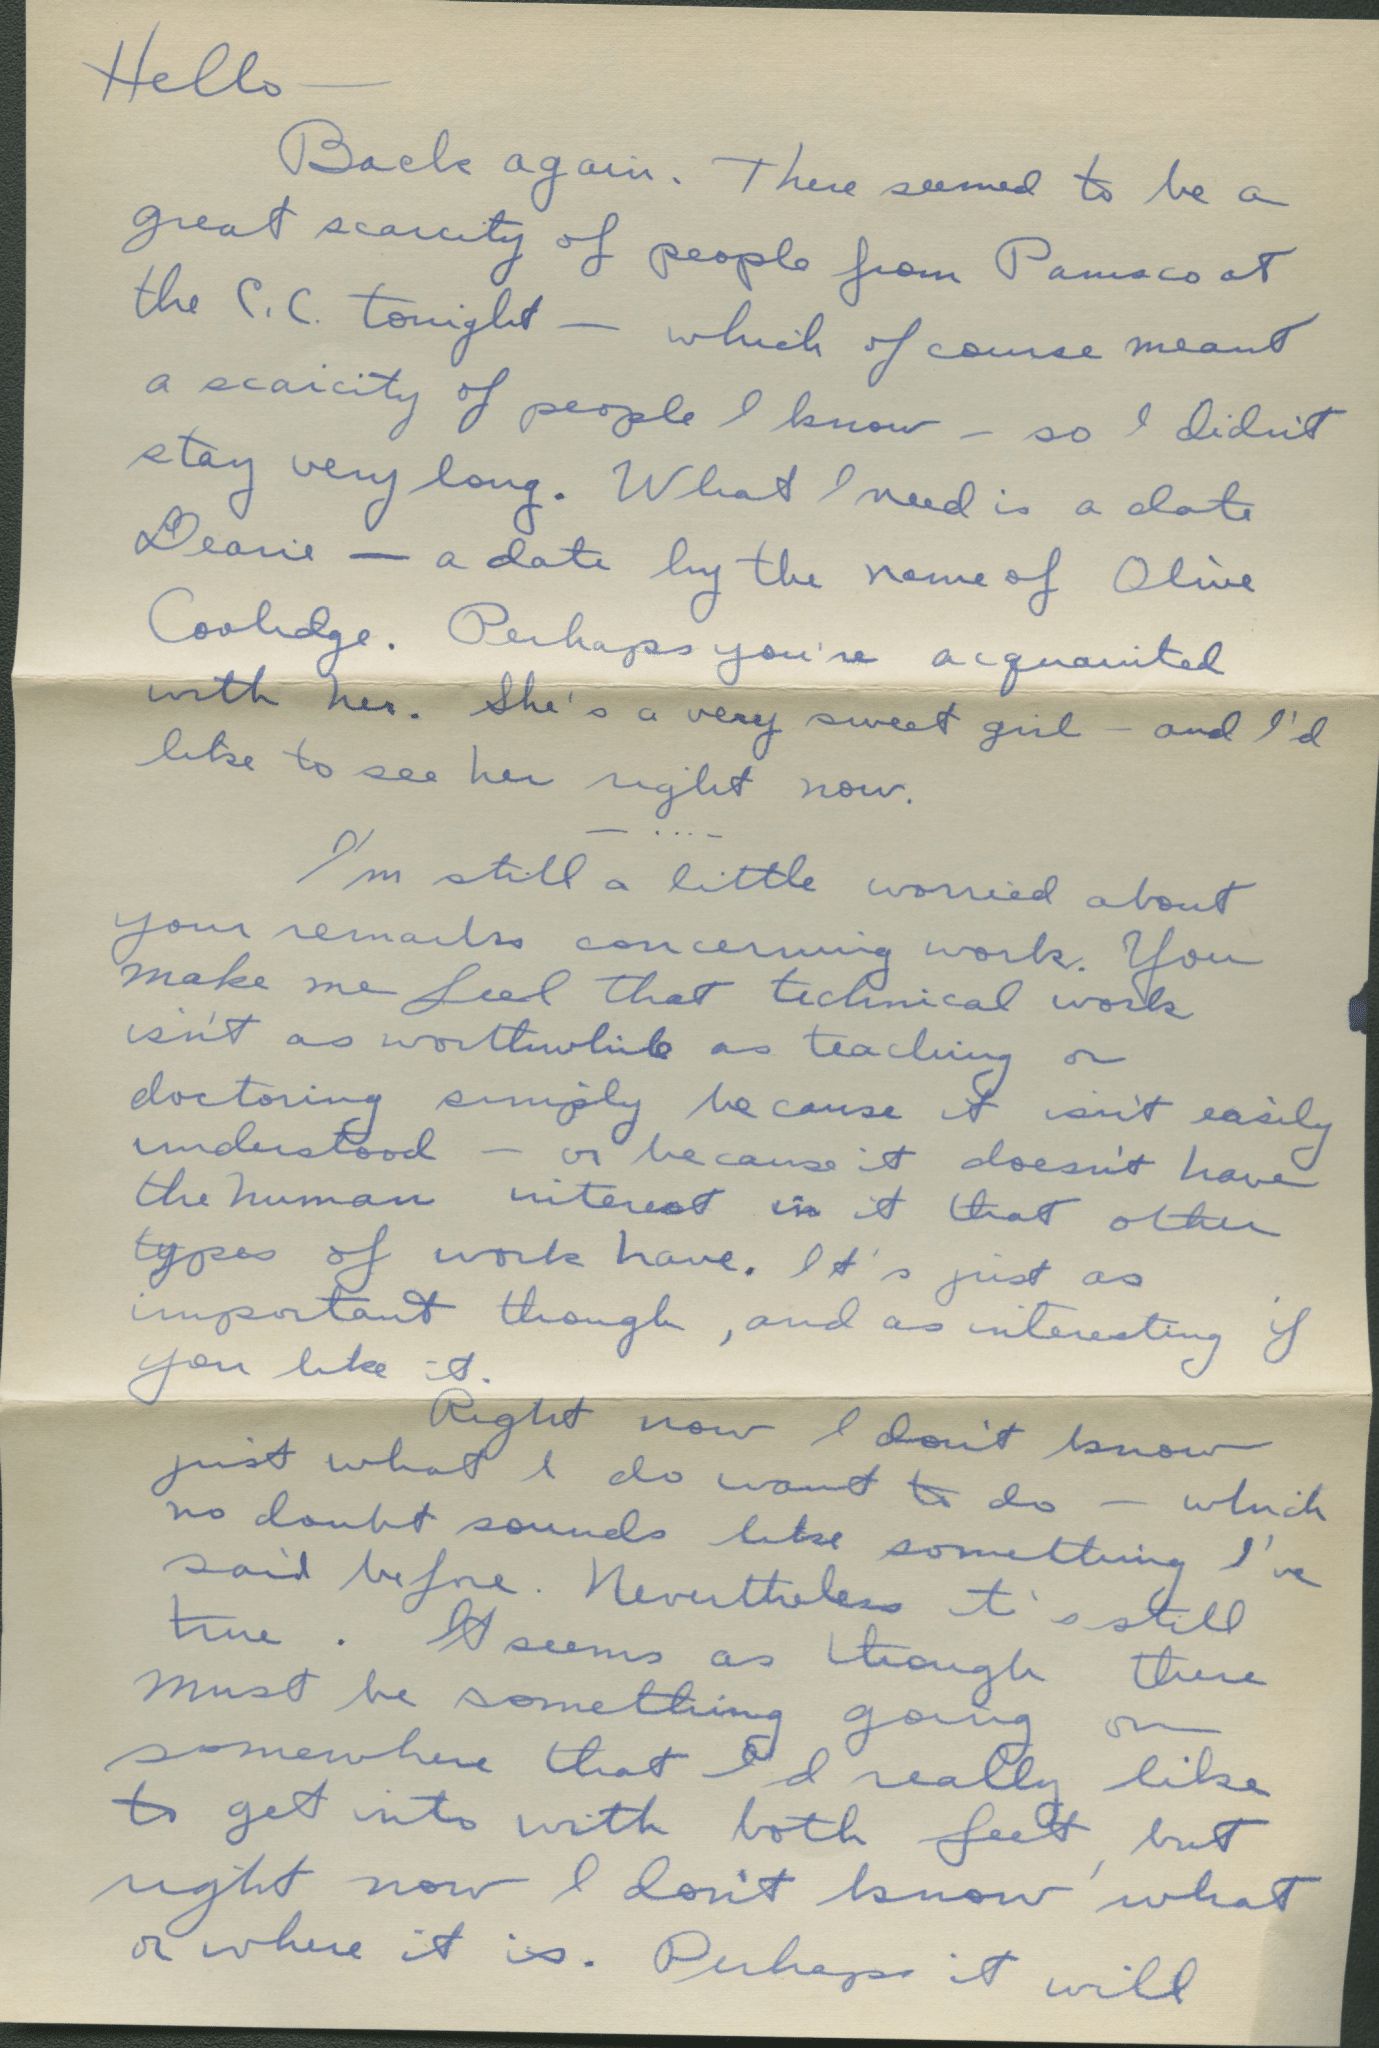 Hello —
Back again. There seemed to be a
great scarcity of people from Panusco at
the C.C. tonight — which of course meant
a scarcity of people I know — so I didn't
stay very long. What I need is a date
Dearie — a date by the name of Olive
Coolidge. Perhaps you're acquainted
with her. She's a very sweet girl — and I'd
like to see her right now.
— ... -
I'm still a little worried about
your remarks concerning work. You
make me feel that technical work
isn't as worthwhile as teaching or
doctoring simply because it isn't easily
understood — or because it doesn't have
the human interest in it that other
types of work have. It's just as
important though, and as interesting if
you like it.
Right now I don't know
just what I do want to do — which
no doubt sounds like something I've
said before. Nevertheless it's still
true. It seems as though there
must be something going on
somewhere that I'd really like
to get into with both feet, but
right now I don't know what
or where it is. Perhaps it will